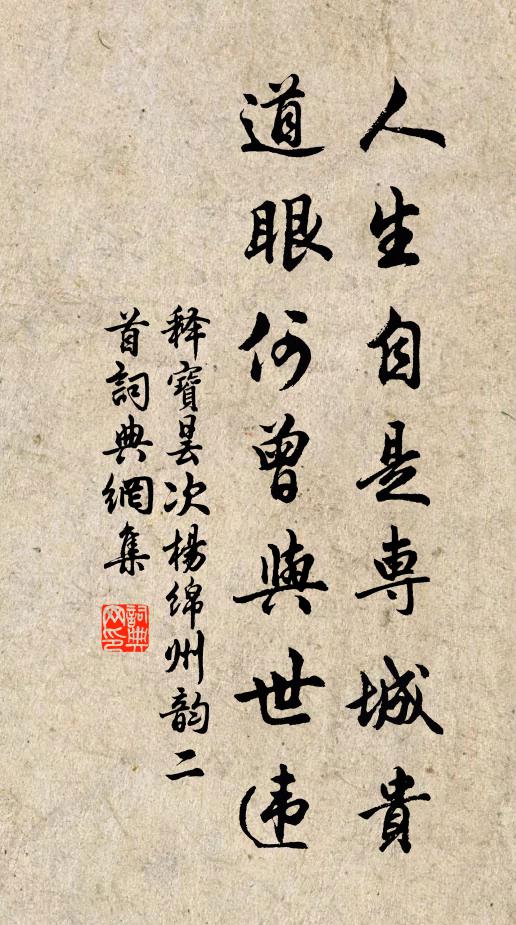 人生自是専城貴
道眼何曾與世违
释寳昙次楊绵州韵二
首詞典網集
詞典网印